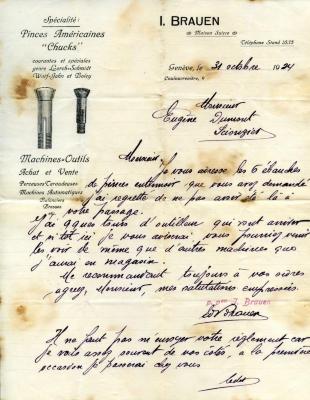 Spécialité:
Pinces Américaines
"Chucks"
courantes et spéciales
genre Lorch-Schmidt
Wolf-Jahn et Boley
Machines-Outils
Achat et Vente
Perceuses-Taraudeuses
Machines Automatiques
Balanciers
Presses
I. BRAUEN
Maison Suisse
Téléphone Stand 16.15
Genève, le 31 octobre 1924
Coulouvrenière, 4
Monsieur
Eugène Dumont
Scionzier
Monsieur,
Je vous adresse les 6 ébauches
de pinces entièrement que vous avez demandé
j'ai regretté de ne pas avoir été là à
votre passage.
J'ai qques tours d'outilleur qui vont arriver
et sitôt ici je vous aviserai vous pourriez venir
les voir de même que d'autres machines que
j'aurai en magasin.
Me recommandant toujours à vos ordres
agréez, Monsieur, mes salutations empressées.
p. pon I. Brauen
Brauen
Il ne faut pas m'envoyer votre règlement car
je vais assez souvent de vos côtés, à la première
occasion je passerai chez vous